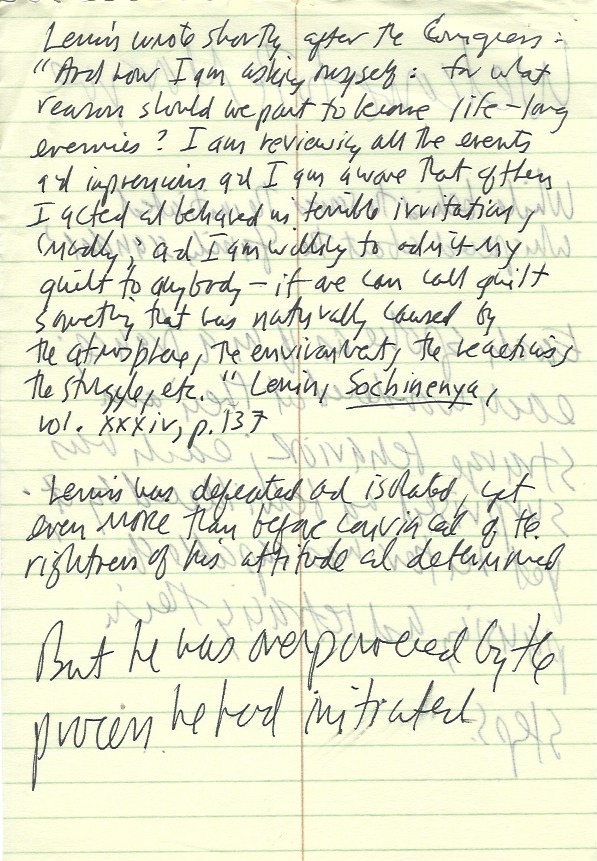 Lenin wrote shortly after the Congress:
"And now I am asking myself: for what
reason should we part to become life-long
enemies? I am reviewing all the events
and impressions and I am aware that often
I acted and behaved in terrible irritation,
'madly,' and I am willing to admit my
guilt to anybody – if we can call guilt
something that was naturally caused by
the atmosphere, the environment, the reactions,
the struggle, etc." Lenin, Sochinenya,
vol. XXXIV, p. 137
Lenin was defeated and isolated, yet
even more than before convinced of the
rightness of his attitude and determined
But he was overpowered by the
process he had initiated